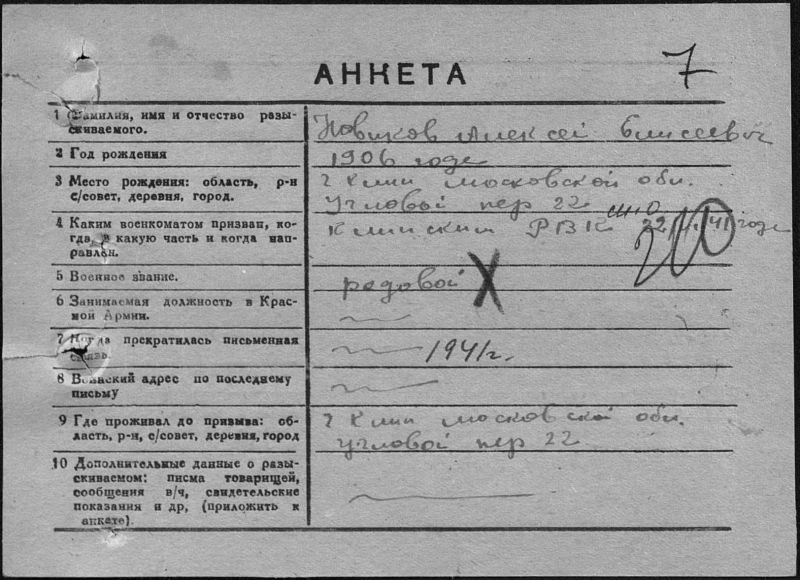 7
АНКЕТА
1 Фамилия, имя и отчество разы-
скиваемого.
Новиков Алексей Елисеевич
2 Год рождения
1906 годе
3 Место рождения: область, р-н
с/совет, деревня, город.
г Клин московской обл.
Угловой пер 22
4 Каким военкоматом призван, ко-
гда, в какую часть и когда нап-
равлен.
Клинским РВК 22/ 41 годе
5 Военное звание.
редовой
6 Занимаемая должность в Крас-
ной Армии.
7 Когда прекратилась письменная
связь.
1941 г.
8 Воинский адрес по последнему
письму
9 Где проживал до призыва: об-
ласть, р-н, с/совет, деревня, город
г Клин московской обл.
угловой пер 22
10 Дополнительные данные о разы-
скиваемом: писма товарищей,
сообщения в/ч, свидетельские
показания и др, (приложить к
анкете).